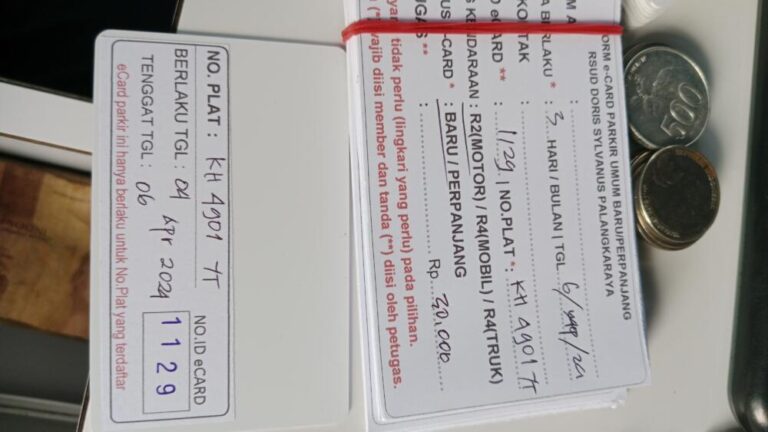 NO. PLAT : KH 4901 YT
BERLAKU TGL : 04 Apr 2024
TENGGAT TGL : 06
NO.ID eCARD
1129
eCard parkir ini hanya berlaku untuk No.Plat yang terdaftar
ORM e-CARD PARKIR UMUM BARU/PERPANJANG
RSUD DORIS SYLVANUS PALANGKARAYA
BERLAKU * : 3 HARI / BULAN | TGL. 6/
ECARD ** : 1129 | NO.PLAT *: KH 4901 YT
KENDARAAN : R2(MOTOR) / R4(MOBIL) / R4(TRUK)
-CARD * : BARU / PERPANJANG
** : Rp 30.000
tidak perlu (lingkari yang perlu) pada pilihan.
wajib diisi member dan tanda (**) diisi oleh petugas.
500